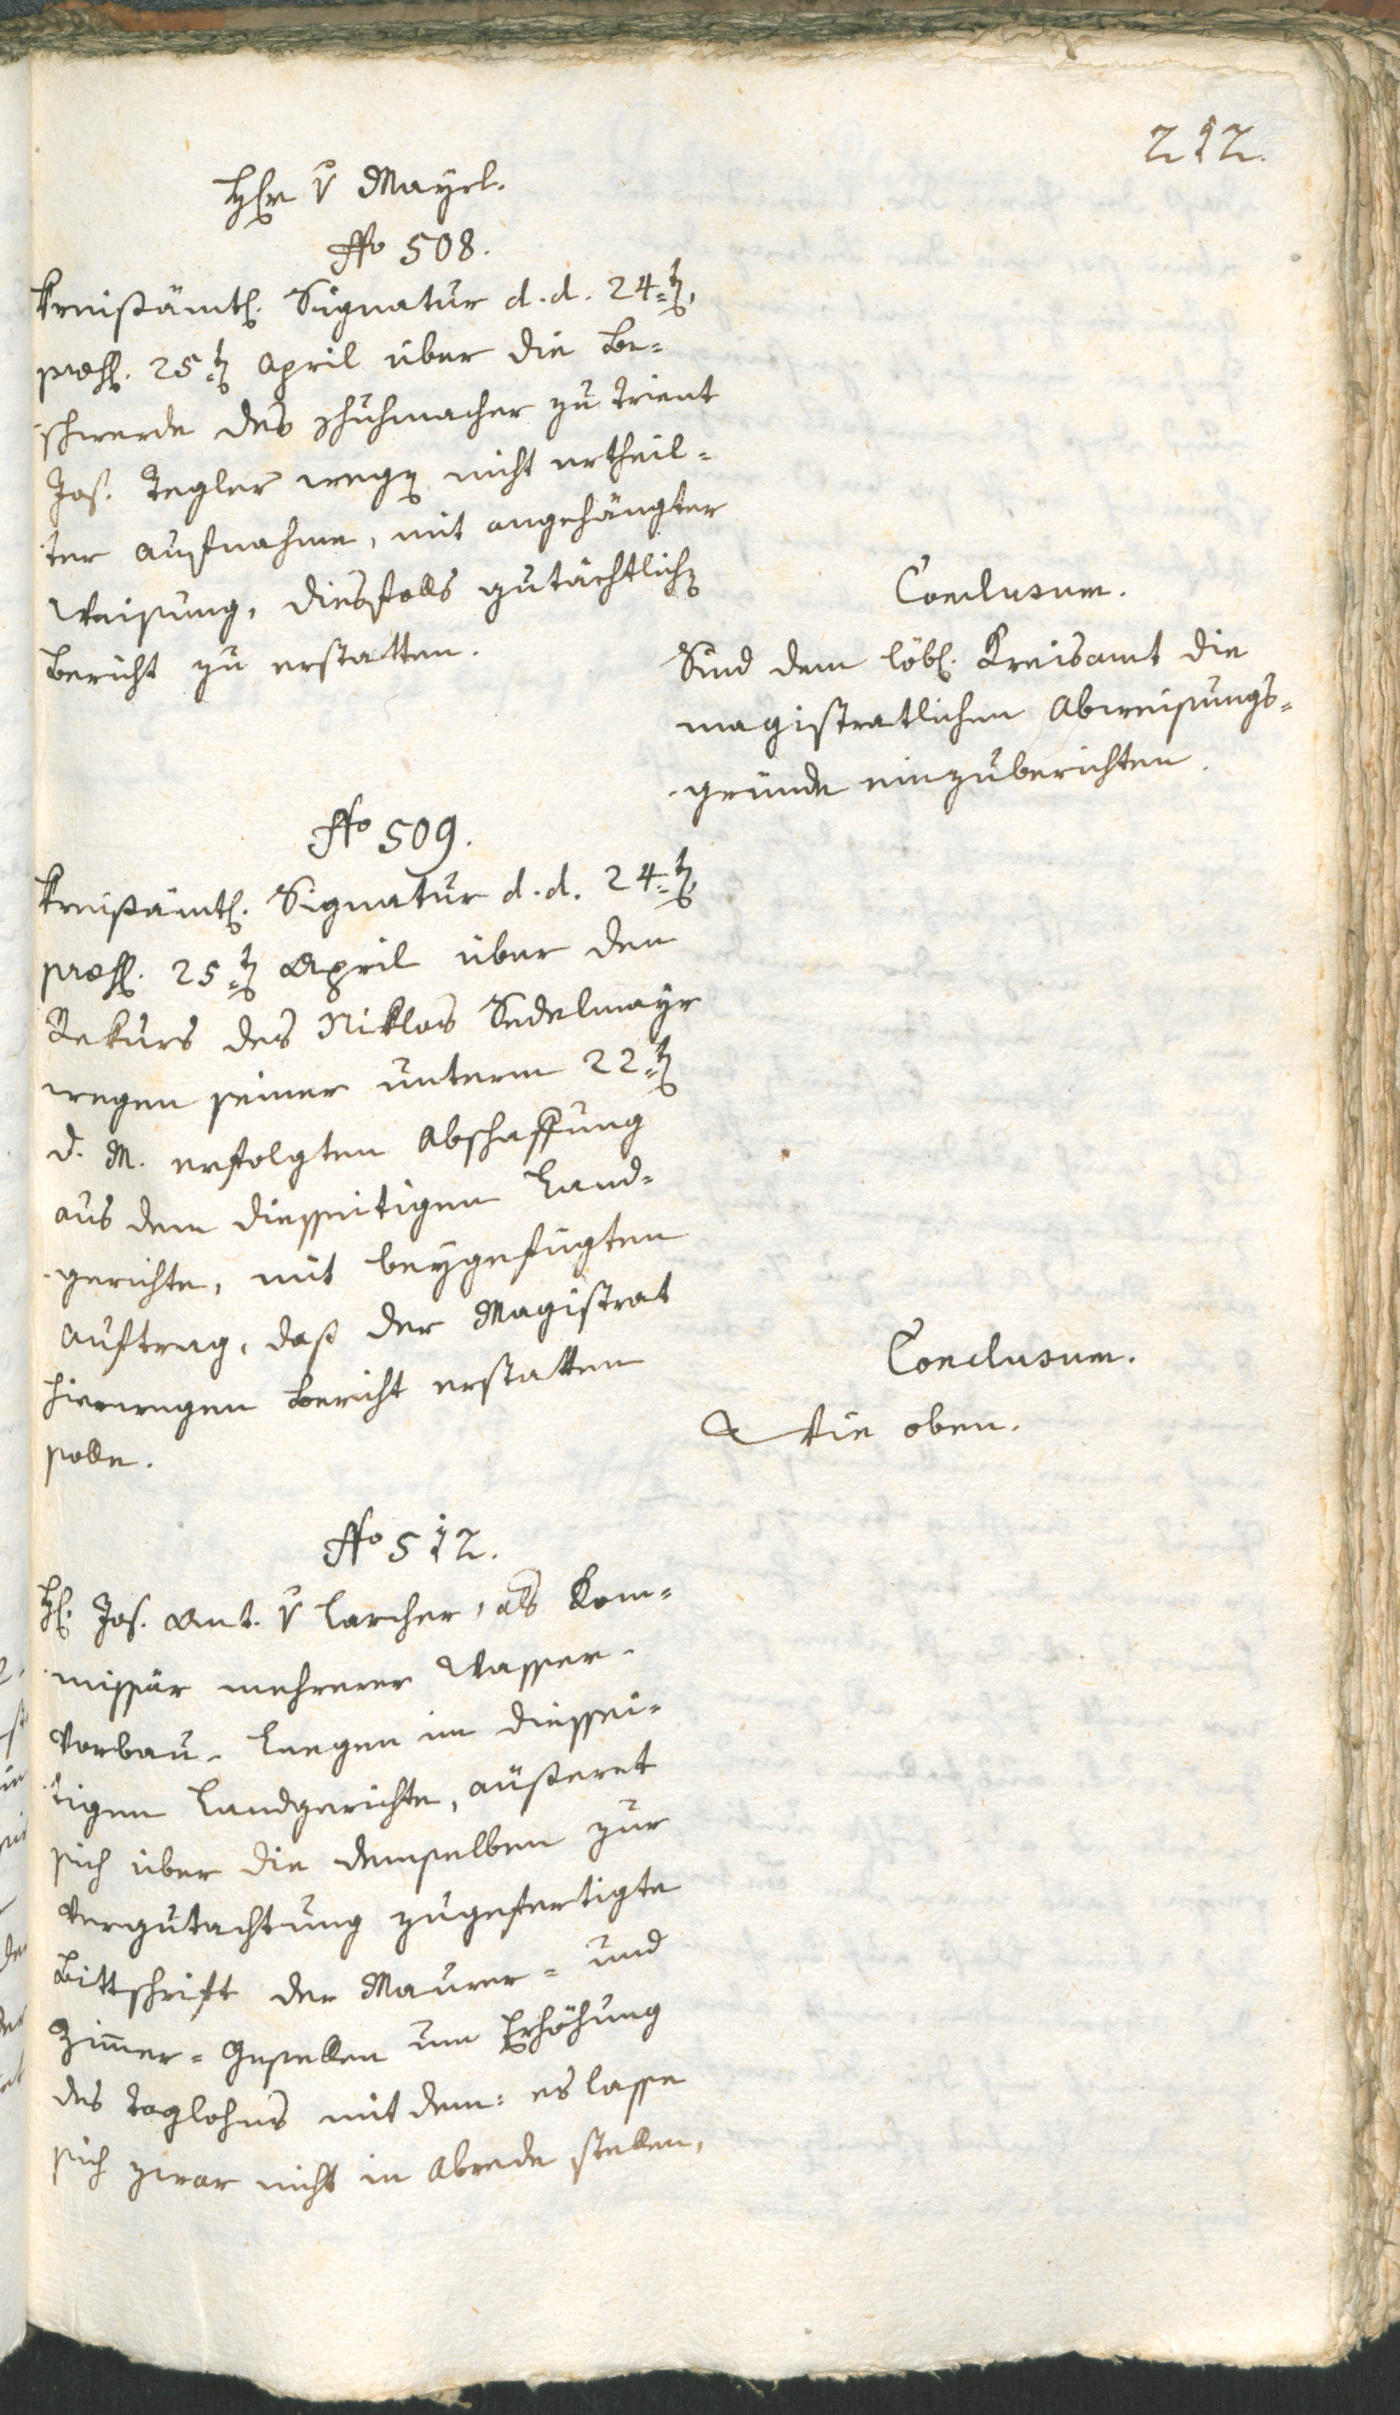 212.
Hhr v Mayrl.
No 508.
Kreißämtl. Signatur d. d. 24=t,
præs. 25=t April über die Be=
schwerde des Schuhmacher zu Trient
Jos. Tegler weg nicht ertheil=
ter Aufnahme, mit angehängter
Weisung, diesfalls gutächtlich
Bericht zu erstatten.
Conclusum.
Sind dem löbl. Kreisamt die
magistratlichen Abweisungs=
gründe einzuberichten.
No 509.
Kreißämtl. Signatur d. d. 24=t,
præs. 25=t April über den
Rekurs des Niklas Sedelmayr
wegen seiner unterm 22=t
d. M. erfolgten Abschaffung
aus dem diesseitigen Land=
gerichte, mit beygefügten
Auftrag, daß der Magistrat
hierwegen Bericht erstatten
solle.
Conclusum.
Wie oben.
No 512.
H. Jos. Ant. v Larcher, als Kom=
missär mehrerer Wasser=
Vorbau= Luegen im diessei=
tigen Landgerichte, äußeret
sich über die demselben zur
Vergutachtung zugefertigte
Bittschrift der Maurer= und
Zimer= Gesellen um Erhöhung
des Taglohns mit dem: es lasse
sich zwar nicht in Abrede stellen,